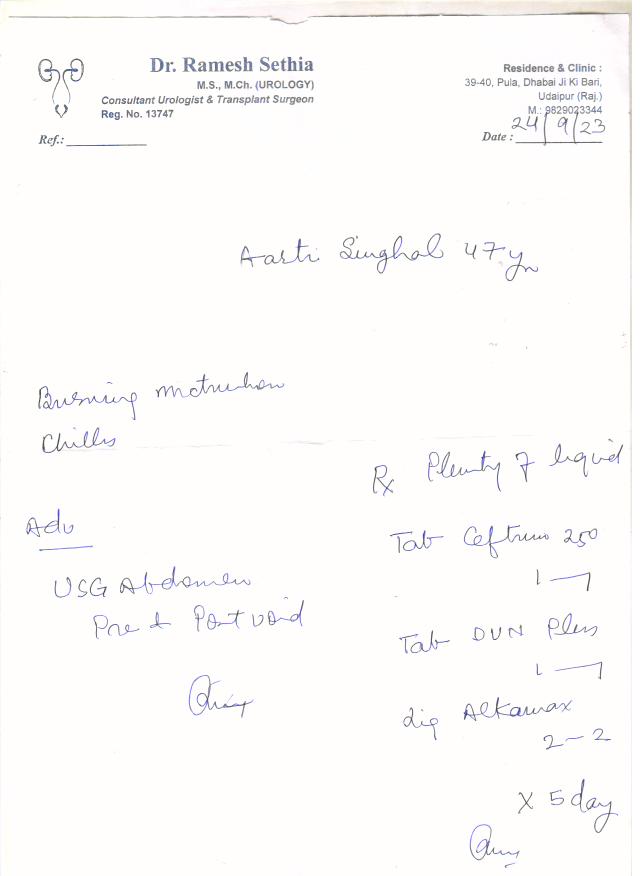 Dr. Ramesh Sethia
M.S., M.Ch. (UROLOGY)
Consultant Urologist & Transplant Surgeon
Reg. No. 13747
Ref.:
Residence & Clinic :
39-40, Pula, Dhabai Ji Ki Bari,
Udaipur (Raj.)
M.: 9829023344
Date : 24/9/23
Aarti Singhal 47 yr
Burning micturition
Chills
Adv
USG Abdomen
Pre + Post void
Rx Plenty of liquid
Tab 250
1 — 1
Tab Plus
1 — 1
liq Alkamax
2 — 2
X 5 day